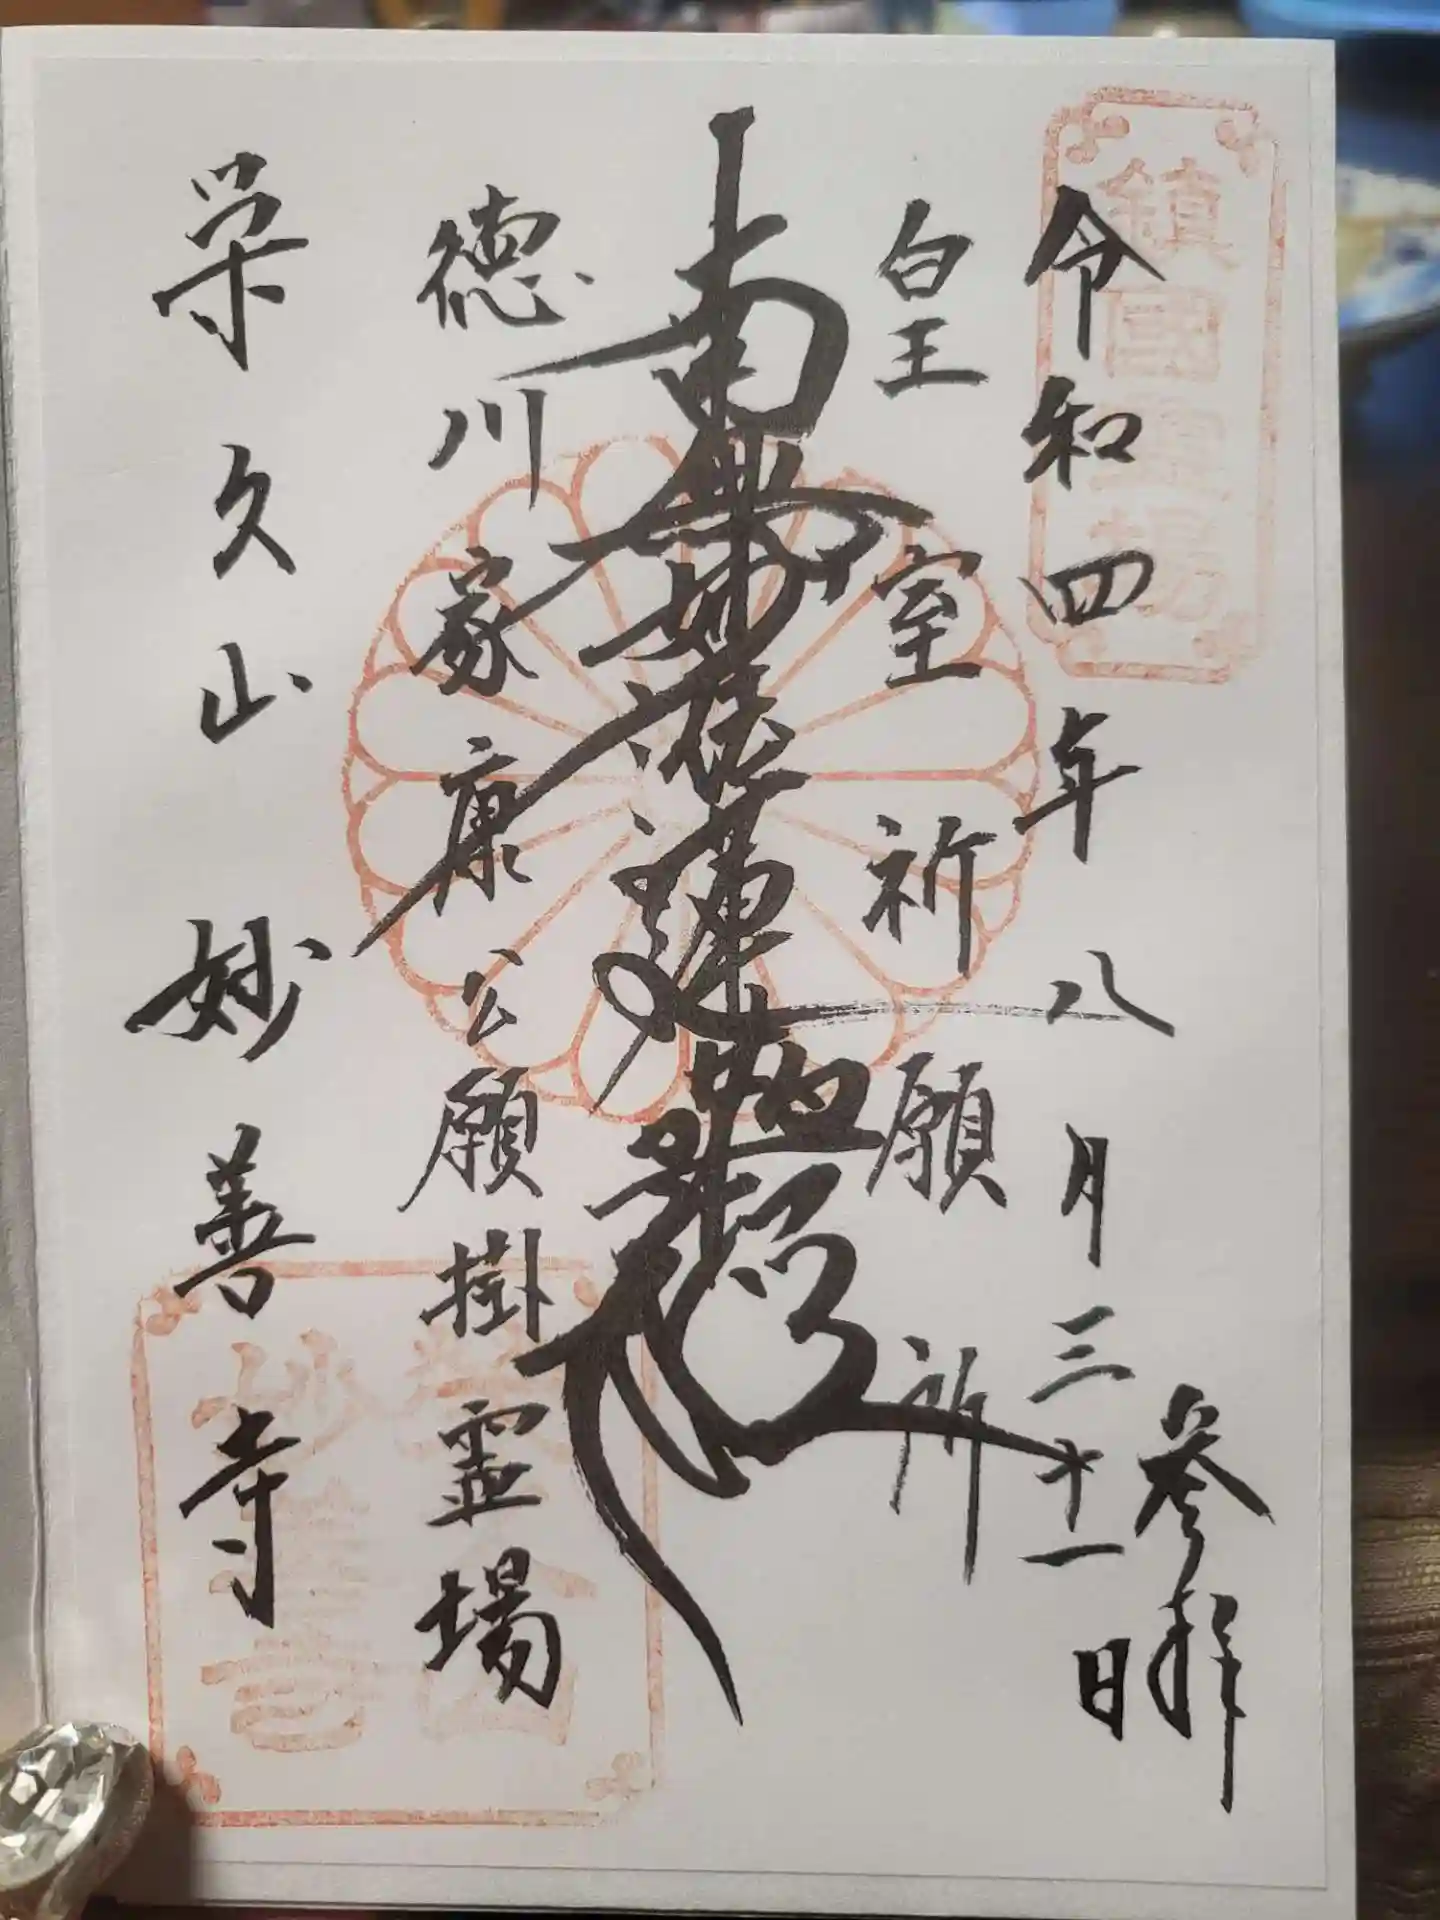 鎮國霊場
参拝
令和四年八月三十一日
皇室祈願所
南無妙法蓮華経
徳川家康公願掛霊場
栄久山妙善寺
栄久山
妙善寺